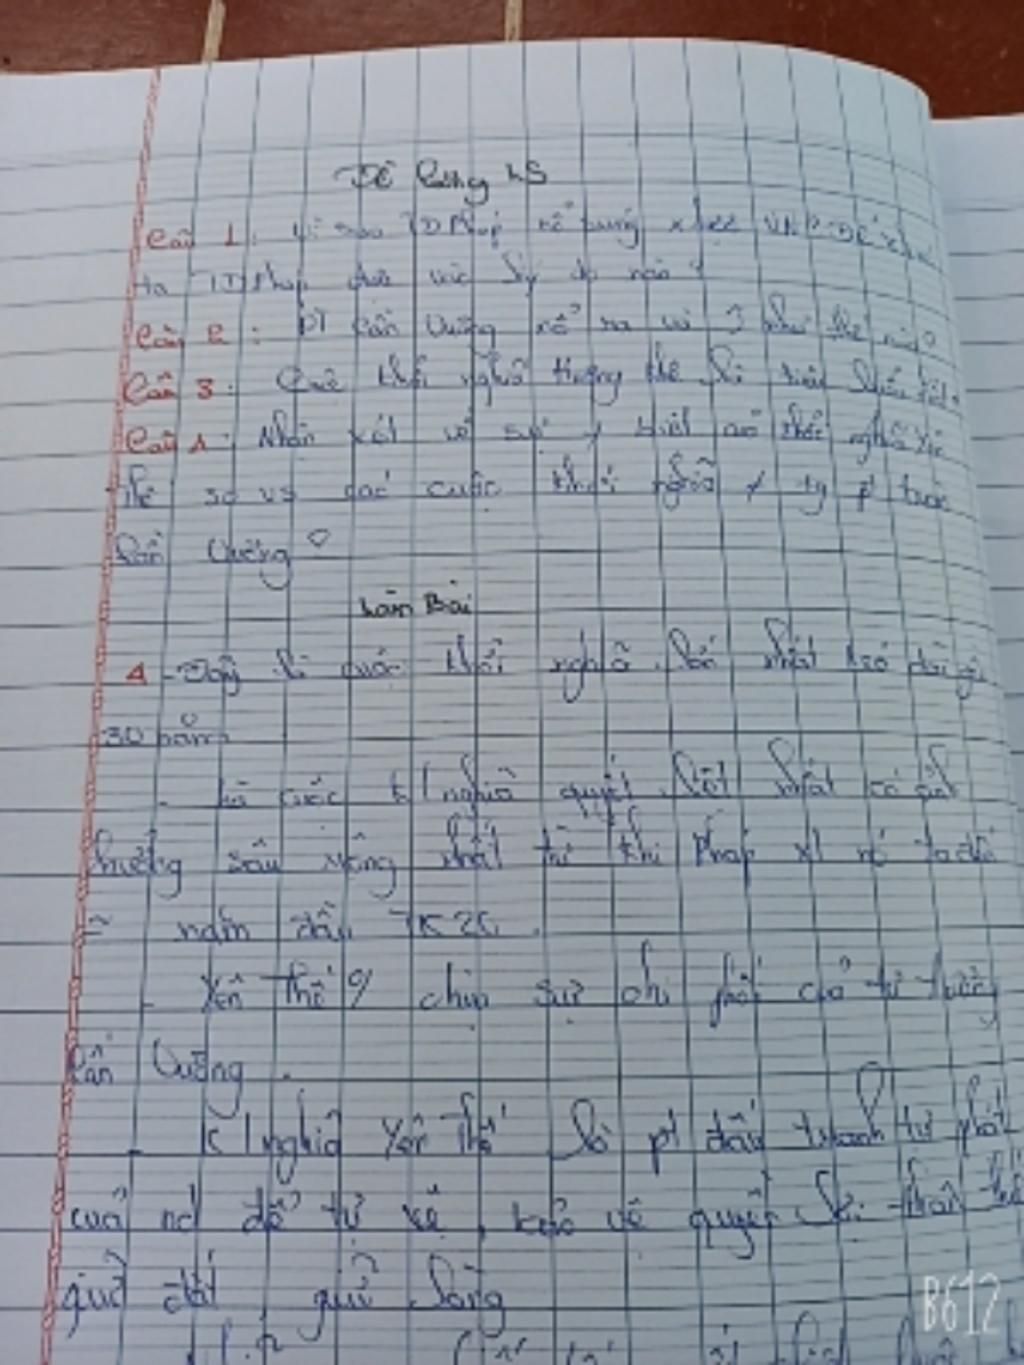 Đề Cương LS
Câu 1: Vì sao TD Pháp nổ súng xlược VN? Để
ta TD Pháp dựa vào lý do nào?
Câu 2: PT Cần Vương nổ ra và như thế nào?
Câu 3: Cuộc khởi nghĩa Hương Khê là tiêu biểu
Câu 4: Nhận xét về sự # biệt khởi nghĩa Yên
Thế so vs các cuộc khởi nghĩa # tg pt
Cần Vương?
Làm Bài
4 - Đây là cuộc khởi nghĩa lớn nhất kéo dài gần
30 năm
- Là cuộc k/nghĩa quyết liệt nhất có ảnh
hưởng sâu rộng nhất từ khi Pháp xl nc ta đến
năm đầu TK 20.
- Yên Thế chịu sự chi phối của tư tưởng
Cần Vương.
- K/nghĩa Yên Thế là pt đấu tranh tự phát
của nd để tự vệ, bảo vệ quyền lợi
giữ đất, giữ làng
B612